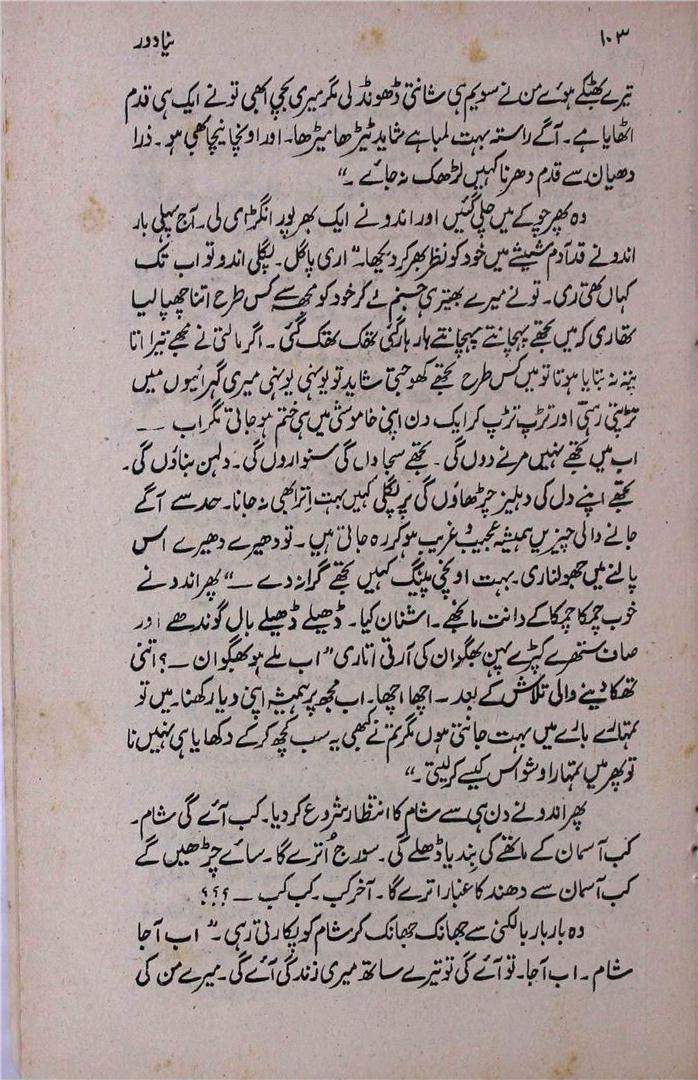 ۱۰۳ نیا دور
تیرے بھٹکے ہوئے من نے سویم ہی شانتی ڈھونڈ لی مگر میری بچی ابھی تو نے ایک ہی قدم
اٹھایا ہے۔ آگے راستہ بہت لمبا ہے شاید ٹیڑھا میڑھا۔ اور اونچا نیچا بھی ہو۔ ذرا
دھیان سے قدم دھرنا کہیں لڑھک نہ جائے ۔“
وہ پھر چوکے میں چلی گئیں اور اندو نے ایک بھرپور انگڑائی لی۔ آج پہلی بار
اندو نے قد آدم شیشے میں خود کو نظر بھر کر دیکھا۔ ”اری پاگل۔ پگلی اندو تو اب تک
کہاں تھی ری۔ تو نے میرے بھیتر ہی جنم لے کر خود کو مجھ سے کس طرح اتنا چھپا لیا
تھا ری کہ میں تجھے پہچانتے پہچانتے ہار ہار گئی تھک تھک گئی۔ اگر مالتی نے مجھے تیرا اتا
پتہ نہ بتایا ہوتا تو میں کس طرح تجھے کھوجتی شاید تو یونہی یونہی میری گہرائیوں میں
تڑپتی رہتی اور تڑپ تڑپ کر ایک دن اپنی خاموشی میں ہی ختم ہو جاتی مگر اب ——
اب میں تجھے نہیں مرنے دوں گی۔ تجھے سجاؤں گی سنواروں گی۔ دلہن بناؤں گی۔
تجھے اپنے دل کی دہلیز چڑھاؤں گی پر پگلی کہیں بہت اِترا بھی نہ جانا۔ حد سے آگے
جانے والی چیزیں ہمیشہ عجیب و غریب ہو کر رہ جاتی ہیں۔ تو دھیرے دھیرے اس
پالنے میں جھولنا ری۔ بہت اونچی پینگ کہیں تجھے گرا نہ دے —“ پھر اندو نے
خوب چمکا چمکا کے دانت مانجھے۔ اشنان کیا۔ ڈھیلے ڈھیلے بال گوندھے اور
صاف ستھرے کپڑے پہن بھگوان کی آرتی اتاری ”اب ملے ہو بھگوان —؟ اتنی
تھکا دینے والی تلاش کے بعد — اچھا اچھا۔ اب مجھ پر ہمیشہ اپنی دیا رکھنا۔ میں تو
تمہارے بارے میں بہت جانتی ہوں مگر تم نے کبھی یہ سب کچھ کر کے دکھایا ہی نہیں نا
تو پھر میں تمہارا وشواس کیسے کر لیتی ۔“
پھر اندو نے دن ہی سے شام کا انتظار شروع کر دیا۔ کب آئے گی شام۔
کب آسمان کے ماتھے کی بِندیا ڈھلے گی۔ سورج اُترے گا۔ سائے چڑھیں گے
کب آسمان سے دھند کا غبار اترے گا۔ آخر کب۔ کب کب — ؟؟؟
وہ بار بار بالکنی سے جھانک جھانک کر شام کو پکارتی رہی۔ ” اب آ جا
شام۔ اب آ جا۔ تو آئے گی تو تیرے ساتھ میری زندگی آئے گی۔ میرے من کی